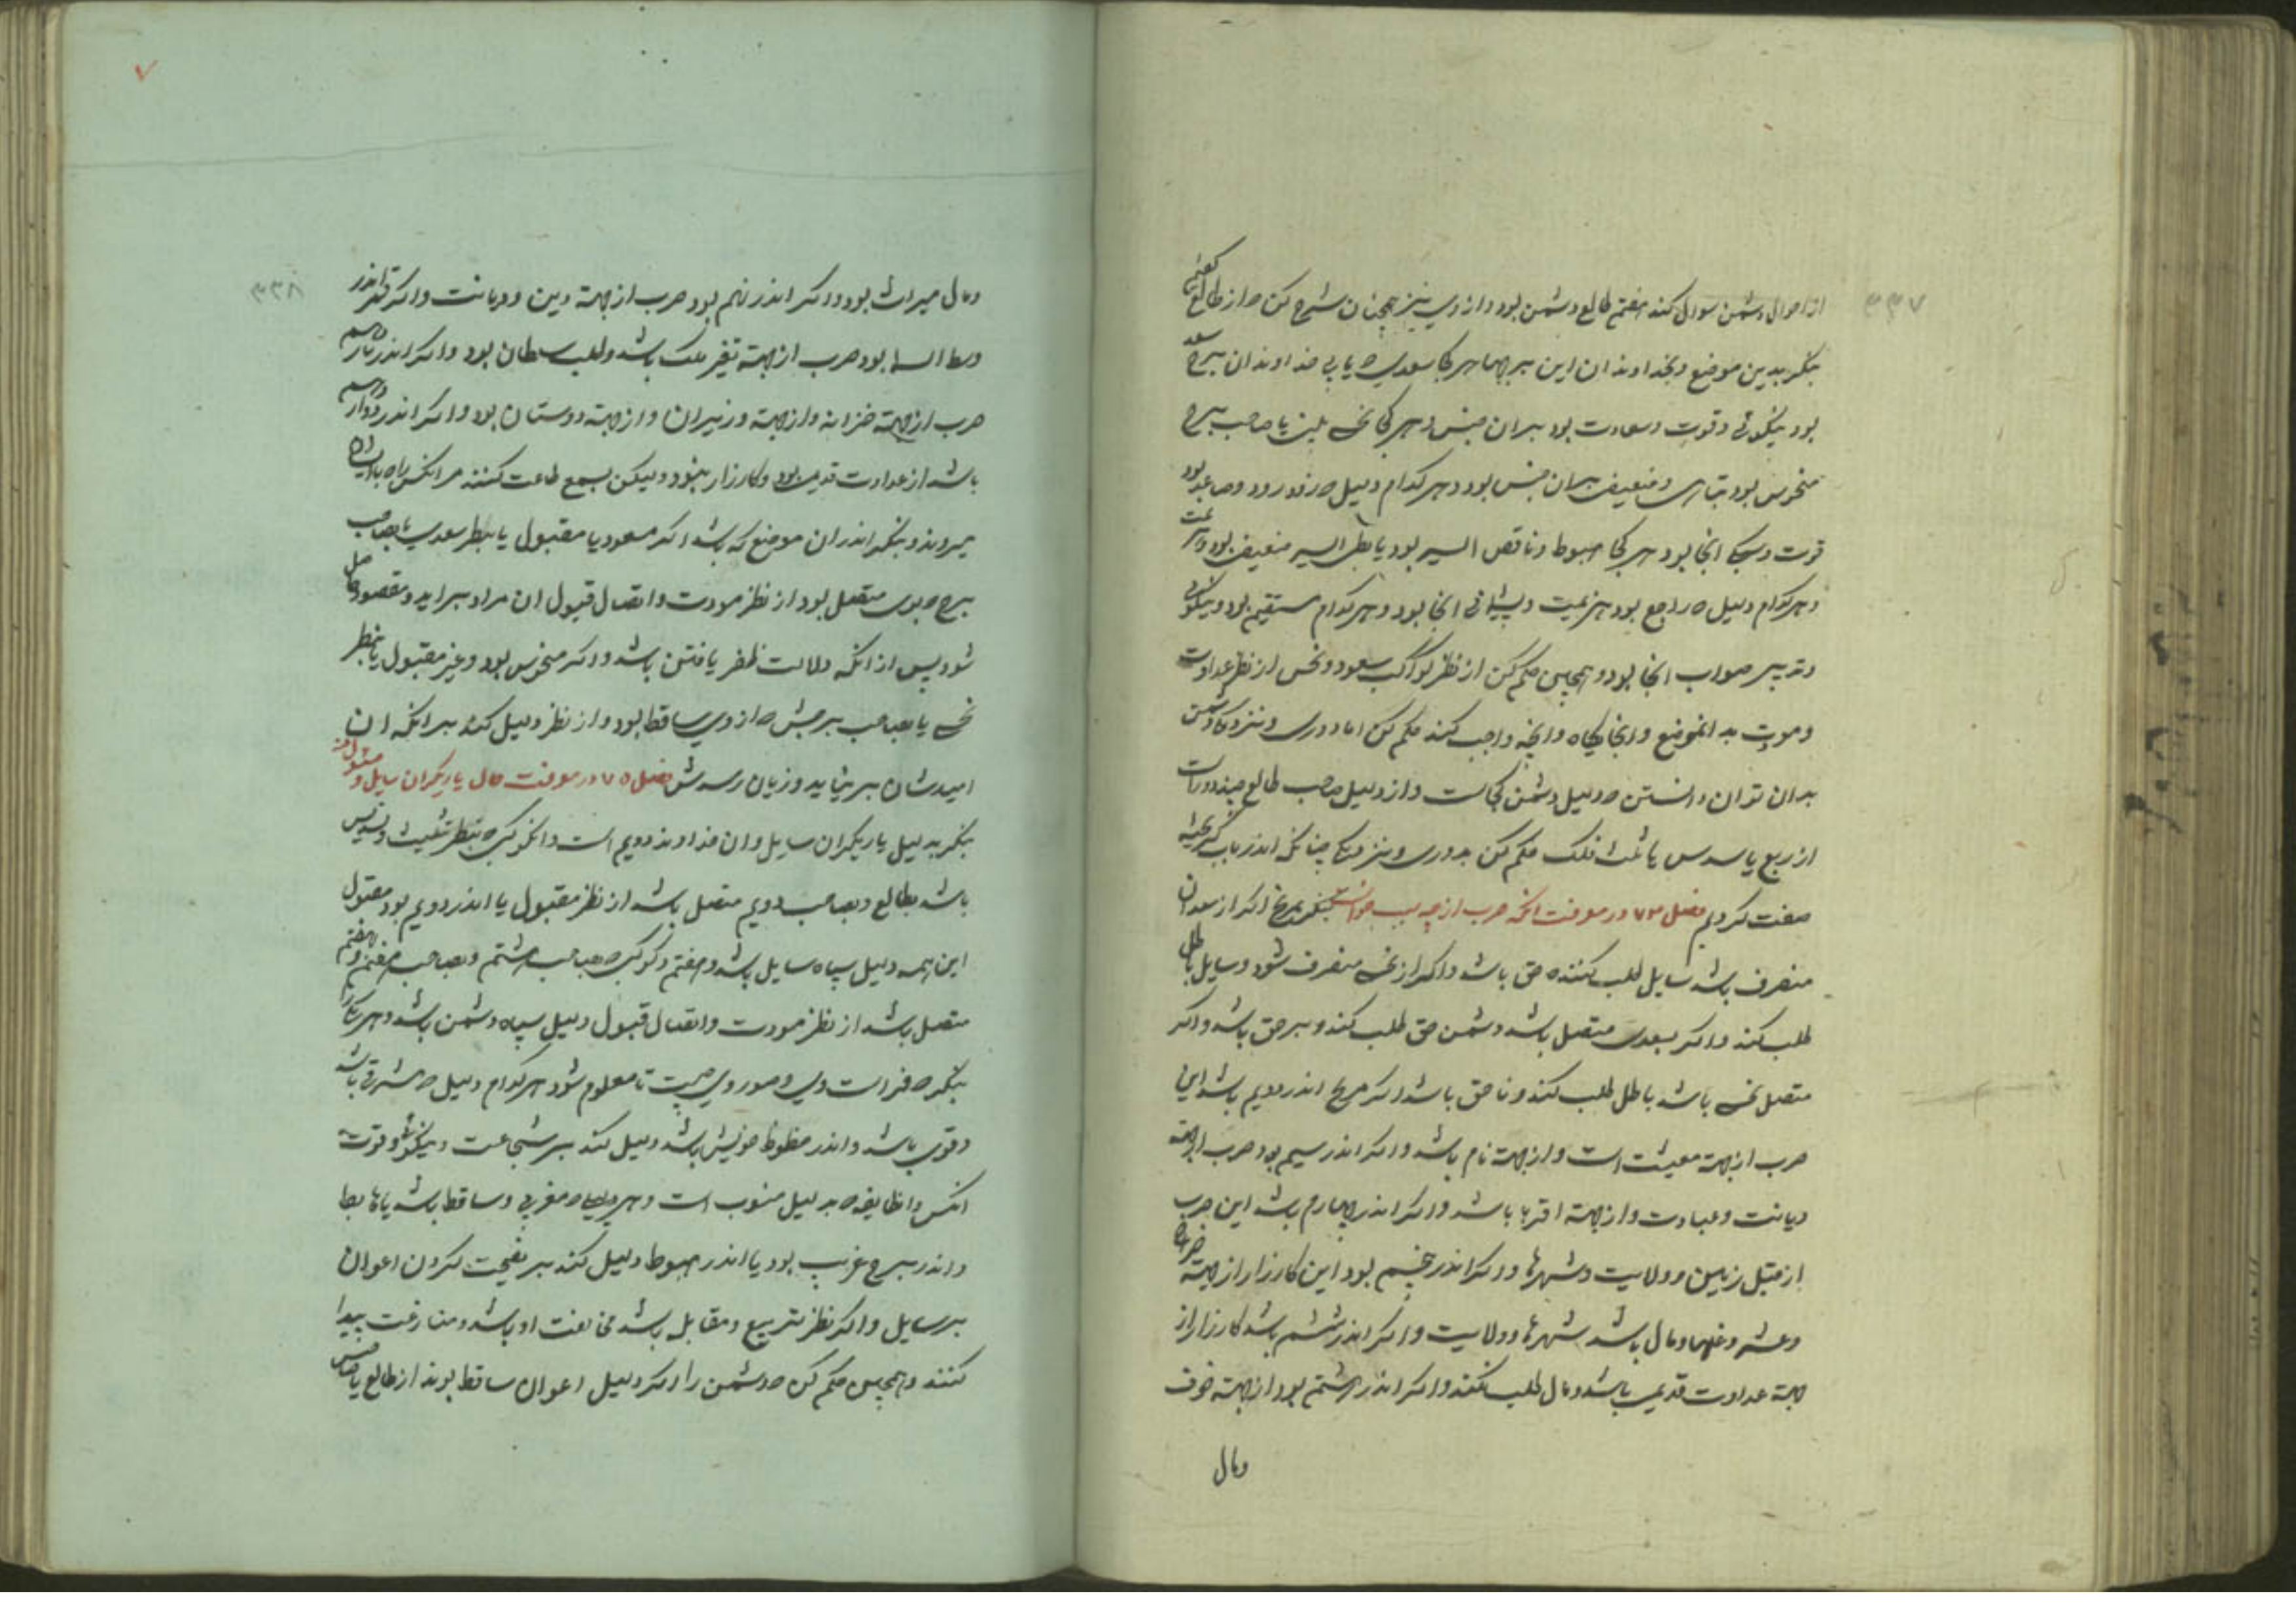 ۳۳۷
از احوال دشمن سوال کند هفتم طالع دشمن بود و از وی نیز همچنان شرح کن که از طالع گفتیم
بنگر بدین موضع و بخداوندان این برجها هر کجا سعدی یابی خداوندان برج سعد
بود نیکوئی و قوت و سعادت بود بران جنس و هر کجا نحسی بلیت یا صاحب برج
منحوس بود تباهی و ضعیف بران جنس بود و هر کدام دلیل که زود رود و صاعد بود
قوت و سبکی آنجا بود هر کجا هبوط و ناقص السیر بود یا بطی السیر ضعیف بود
و هر کدام دلیل که راجع بود هزیمت و پشیمانی آنجا بود و هر کدام مستقیم بود و نیکوئی
و تدبیر صواب آنجا بود و همچنین حکم کن از نظر کواکب سعود و نحس از نظر عداوت
و مودت بدانموضع و آنجایگاه و آنچه واجب کند حکم کن اما دوری و نزدیکی دشمن
بدان توان دانستن که دلیل دشمن کجاست و از دلیل صاحب طالع چند دور است
از ربع یا سدس یا ثلث فلک حکم کن بدوری و نزدیکی چنانکه اندر باب گریخته
صفت کردیم فصل ۷۴ در معرفت آنکه حرب از چه سبب خواست بنگر بمریخ اگر از سعدان
منصرف باشد سایل طلب کننده حق باشد و اگر از نحسی منصرف شود و سایل باطل
طلب کند و اگر بسعدی متصل باشد دشمن حق طلب کند و بر حق باشد و اگر
متصل نحسی باشد باطل طلب کند و ناحق باشد و اگر مریخ اندر دویم باشد این
حرب از جهة معیشت است و از جهة نام باشد و اگر اندر سیم بود حرب از جهة
دیانت و عبادت و از جهة اقربا باشد و اگر اندر چهارم باشد این حرب
از قبل زمین و ولایت و شهرها و اگر اندر پنجم بود این کارزار از جهة خراج
و عشر و غلها و مال باشد شهرها و ولایت و اگر اندر ششم باشد کارزار از
جهة عداوت قدیمی باشد و مال طلب نکند و اگر اندر هشتم بود از جهة خوف
ومال
۳۳۸
ومال میراث بود و اگر اندر نهم بود حرب از جهة دین و دیانت و اگر اندر
وسط السما بود حرب از جهة تغیر ملک باشد و طلب سلطان بود و اگر اندر یازدهم
حرب از جهة خزانه و از جهة وزیران و از جهة دوستان بود و اگر اندر دوازدهم
باشد از عداوت قدیمی بود و کارزار نبود و لیکن بسمع طاعت کنند مر آنکس را که با ایشان
میروند و بنگر اندران موضع که باشد اگر مسعود یا مقبول یا بنظر سعدی یا بصاحب
برج که بوی متصل بود از نظر مودت و اتصال قبول آن مراد براید و مقصود حاصل
شود پس از آنکه دلالت ظفر یافتن باشد و اگر منحوس بود و غیر مقبول یا بنظر
نحسی یا بصاحب برجش که از وی ساقط بود و از نظر دلیل کند بر آنکه ان
امیدشان برنیاید و زیان رسدش فصل ۷۵ در معرفت حال یاریگران سایل و مسئول عنه
بنگر بدلیل یاریگران سایل و ان خداوند دویم است و آنکوکبی که بنظر تثلیث و تسدیس
باشد بطالع و بصاحب دویم متصل باشد از نظر مقبول یا اندر دویم بود مقبول
این همه دلیل سپاه سایل باشد و هفتم و کوکبی که صاحب هشتم و بصاحب هفتم و هفتم
متصل باشد از نظر مودت و اتصال قبول دلیل سپاه دشمن باشد و هر یکی را
بنگر تا معلوم شود هر کدام دلیل که مشرقی باشد
و قوی باشد و اندر حظوظ خویش باشد دلیل کند بر شجاعت و نیکوئی و قوت
آنکس و آنطایفه که بدلیل منسوب است و مغربی و ساقط باشد
و اندر برج غریب بود یا اندر هبوط دلیل کند بر نصیحت کردن اعوان
بر سایل و اگر نظر تربیع و مقابله باشد مخالفت او باشد و منازعت پیدا
کنند و همچنین حکم کن دشمن را و اگر دلیل اعوان ساقط بوند از طالع یا